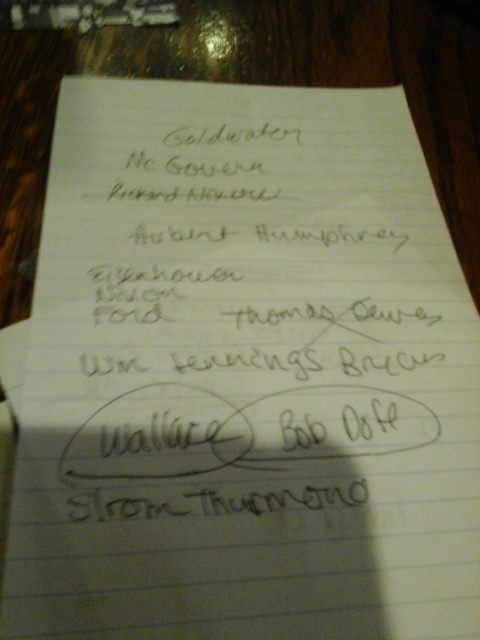 Goldwater
Mc Govern
Richard Nixon
Hubert Humphrey
Eisenhower
Nixon
Ford Thomas Dewey
Wm Jennings Bryan
Wallace Bob Dole
Strom Thurmond